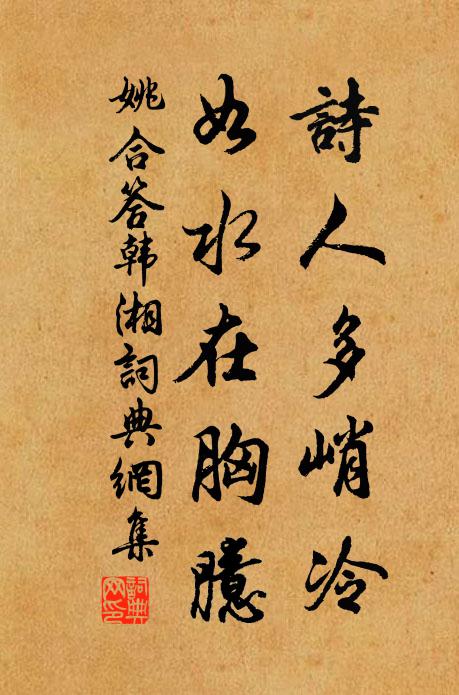 詩人多峭冷
如水在胸臆
姚合答韩湘詞典網集
詞典网印